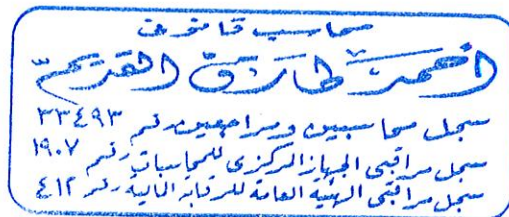 محاسب قانوني
احمد طارق القديم
سجل محاسبين ومراجعين رقم ٣٣٤٩٣
سجل مراقبي الجهاز المركزي للمحاسبات رقم ١٩٠٧
سجل مراقبي الهيئة العامة للرقابة المالية رقم ٤١٢